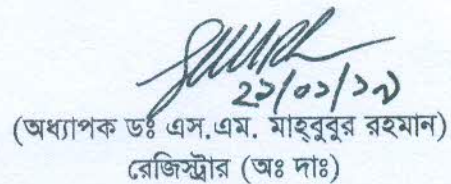 ২১/০১/১৯
(অধ্যাপক ডঃ এস.এম. মাহ্‌বুবুর রহমান)
রেজিস্ট্রার (অঃ দাঃ)